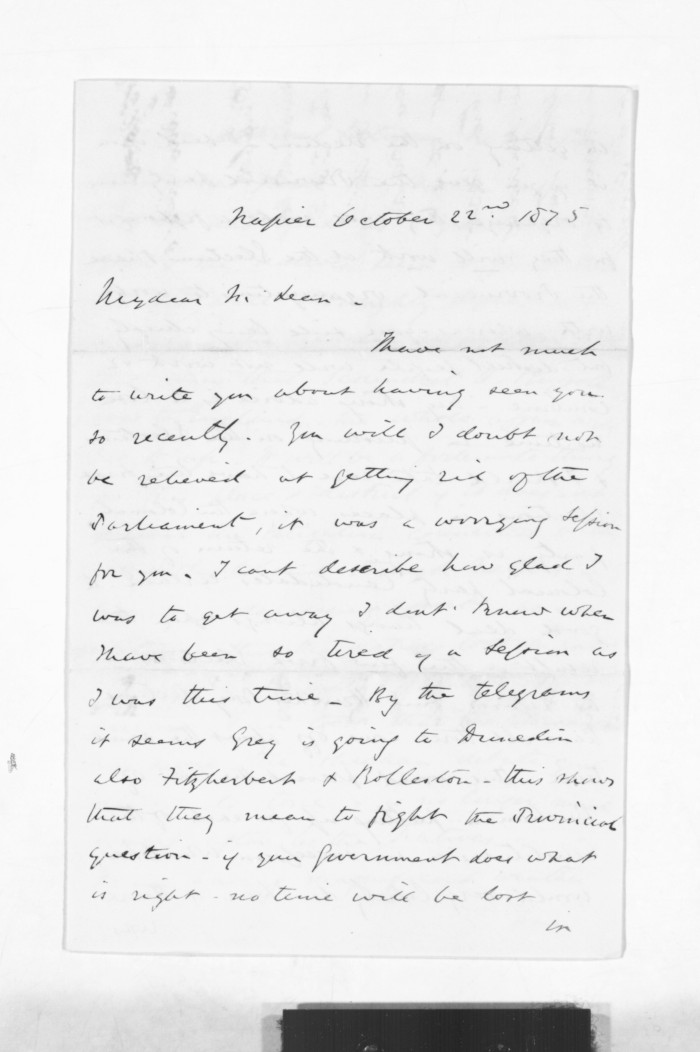 Napier October 22nd 1875
My dear McLean -
I have not much
to write you about having seen you
so recently. You will I doubt not
be relieved at getting rid of the
Parliament, it was a worrying session
for you. I cant describe how glad I
was to get away I dont know when
I have been so tired of a session as
I was this time - By the telegrams
it seems Grey is going to Dunedin
also Fitzherbert & Rolleston - this shows
that they mean to fight the Provincial
question - if your Government does what
is right - no time will be lost
in